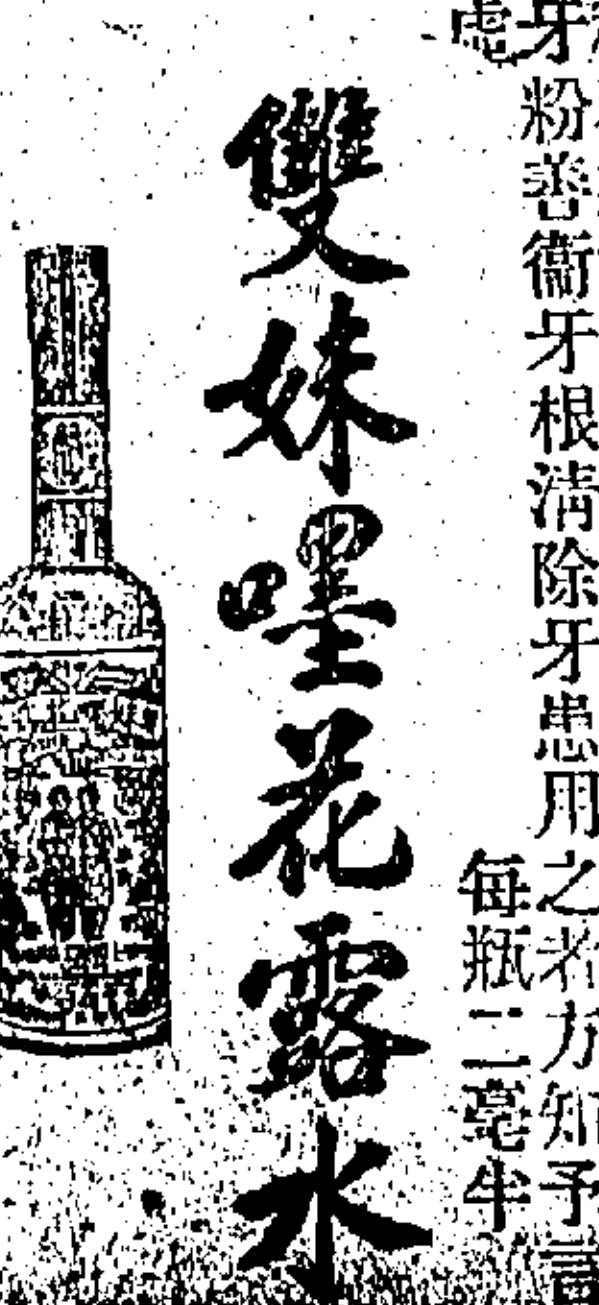 牙粉善衞牙根清除牙患用之者方知予言
虛
每瓶二毫半
雙妹嚜花露水